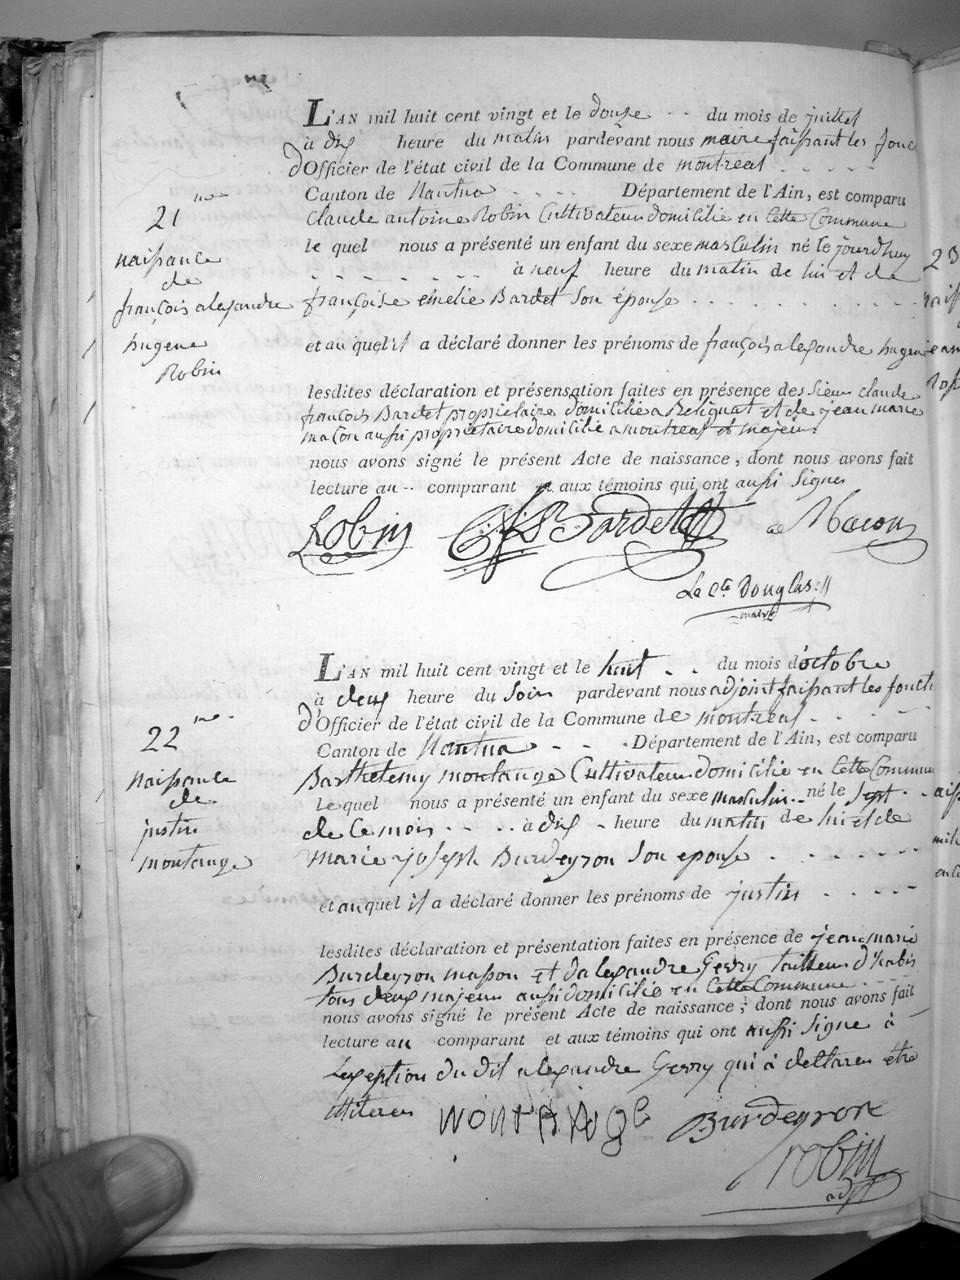 L'AN mil huit cent vingt et le douse -- du mois de juillet
à dix heure du matin pardevant nous maire faissant les fonc
d'Officier de l'état civil de la Commune de montreal
Canton de Nantua Département de l'Ain, est comparu
21me
naissance
de
françois alexandre
hugene
Robin
Claude antoine Robin Cultivateur domicilié en Cette Commune
le quel nous a présenté un enfant du sexe masculin né le jourdhuy
à neuf heure du matin de lui et de
françoise emelie Bardet Son épouse
et au quel il a déclaré donner les prénoms de françois alexandre hugene
lesdites déclaration et présensation faites en présence des Sieur claude
françois Bardet propriétaire domicilié a Belignat et de jean marie
macon aussi propriétaire domicilié a montreal et majeur
nous avons signé le présent Acte de naissance, dont nous avons fait
lecture au -- comparant et aux témoins qui ont aussi Signés
Robin Bardet Macon
Le Cte Douglas
maire
L'AN mil huit cent vingt et le huit -- du mois d'octobre
à deux heure du Soir pardevant nous adjoint faissant les foncti
d'Officier de l'état civil de la Commune de montreal
Canton de Nantua -- Département de l'Ain, est comparu
22me
naissance
de
justin
montange
Barthelemy montange Cultivateur domicilié en Cette Commune
le quel nous a présenté un enfant du sexe masculin né le Sept
de Ce mois à dix heure du matin de lui et de
marie joseph Burdeyron Son epouse
et au quel il a déclaré donner les prénoms de justin
lesdites déclaration et présentation faites en présence de jean marie
Burdeyron masson et d'alexandre Gerry tailleur d'habis
tous deux majeur aussi domicilié en Cette Commune
nous avons signé le présent Acte de naissance; dont nous avons fait
lecture au comparant et aux témoins qui ont aussi Signe à
Lexeption du dit alexandre Gerry qui à dellaren être
illiteres montange Burdeyron
robin
adj